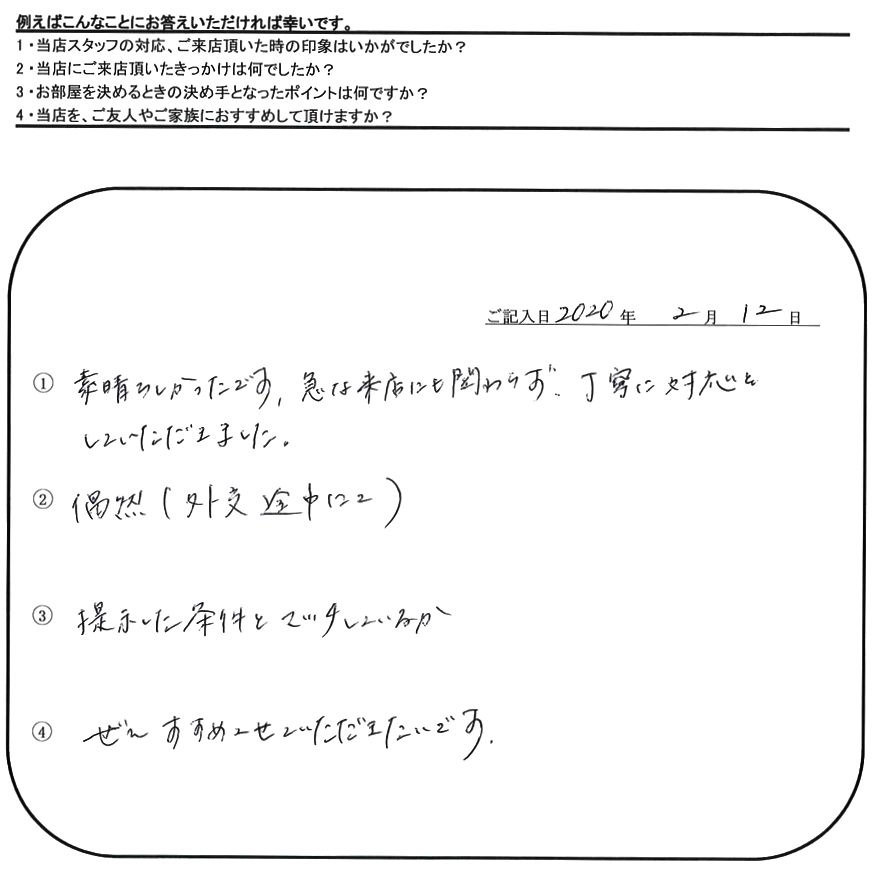 例えばこんなことにお答えいただければ幸いです。
1・当店スタッフの対応、ご来店頂いた時の印象はいかがでしたか？
2・当店にご来店頂いたきっかけは何でしたか？
3・お部屋を決めるときの決め手となったポイントは何ですか？
4・当店を、ご友人やご家族におすすめして頂けますか？
ご記入日 2020 年 2 月 12 日
① 素晴らしかったです, 急な来店にも関わらず、丁寧に対応を
していただきました。
② 偶然(外交途中にて)
③ 提示した条件とマッチしているか
④ ぜひすすめさせていただきたいです.